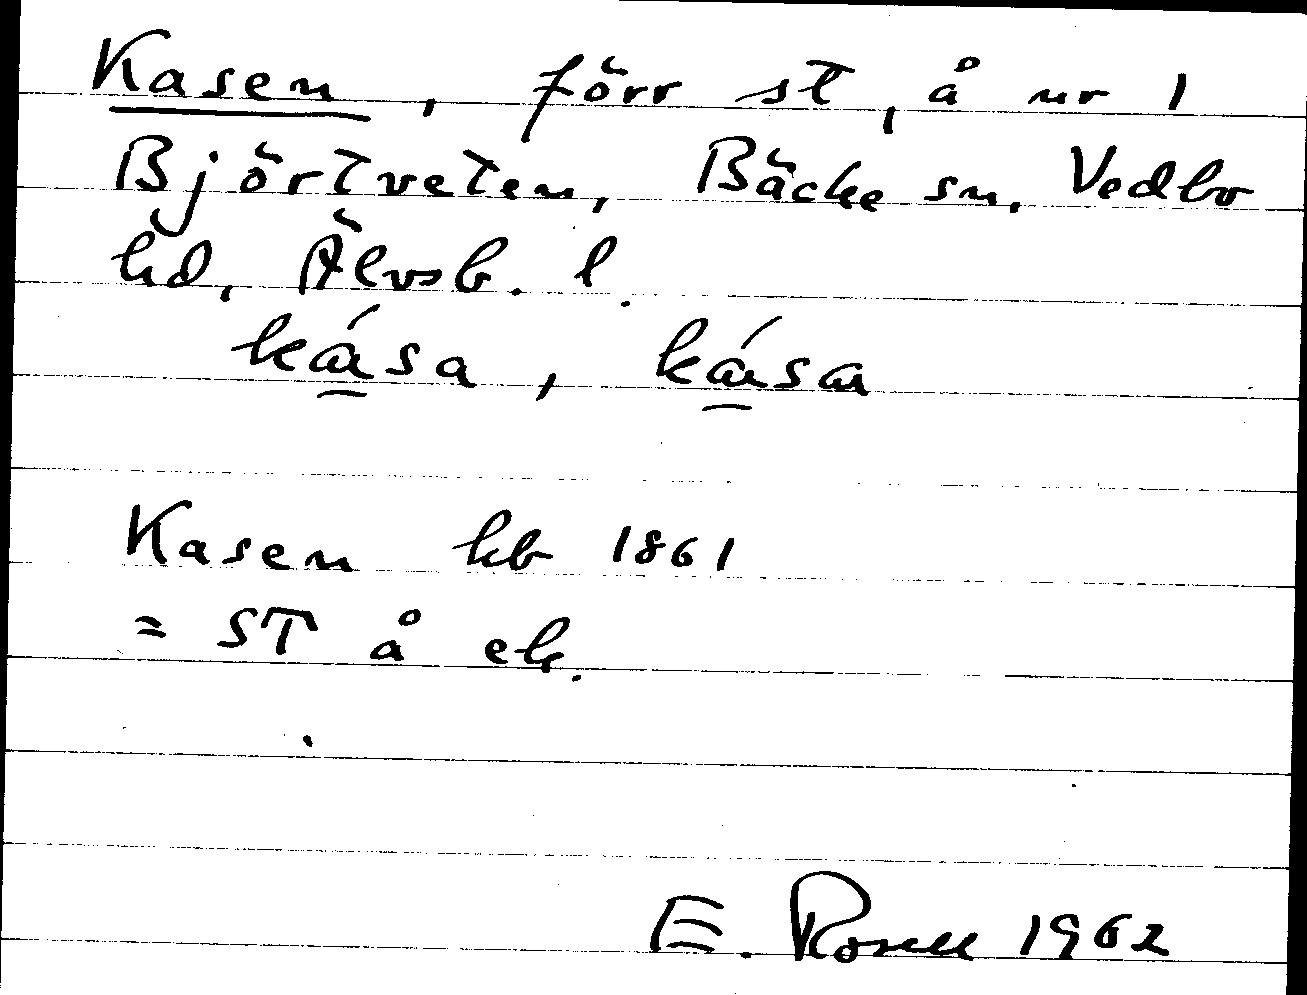 Kasen, förr st, å nr 1
Björtveten, Bäcke sn, Vedbo
hd, Älvsb. l.
ká̠sa, ká̠sa
Kasen hb 1861
= ST å ek.
E. Rosell 1962